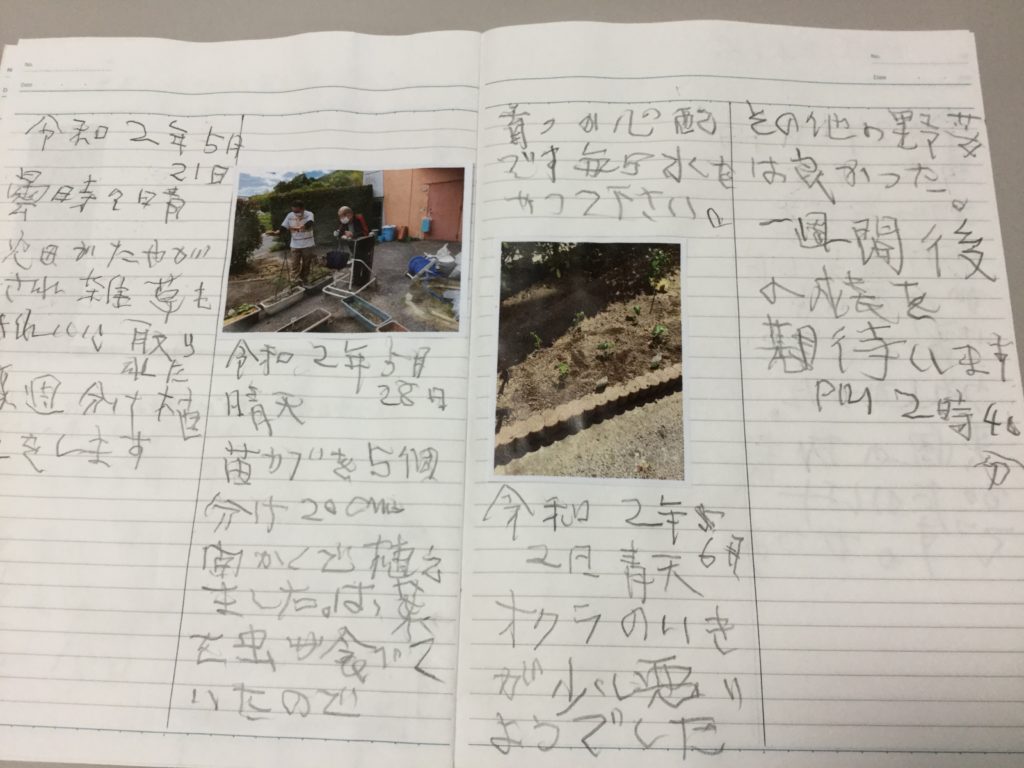 No.
Date
令和2年5月
21日
曇時々晴
され雑草も
取り
来週 分け植
をします
令和2年5月
28日
晴天
苗かぶを5個
分け 20cm
間かくで植え
ました。は、葉
を虫が食べて
いたので
育つか心配
です毎日水も
やって下さい。
令和 2年
2日 青天 6月
オクラのいき
が少し悪い
ようでした
No.
Date
その他の野菜
は良かった。
一週間後
の成長を
期待います
PM 2時40
分